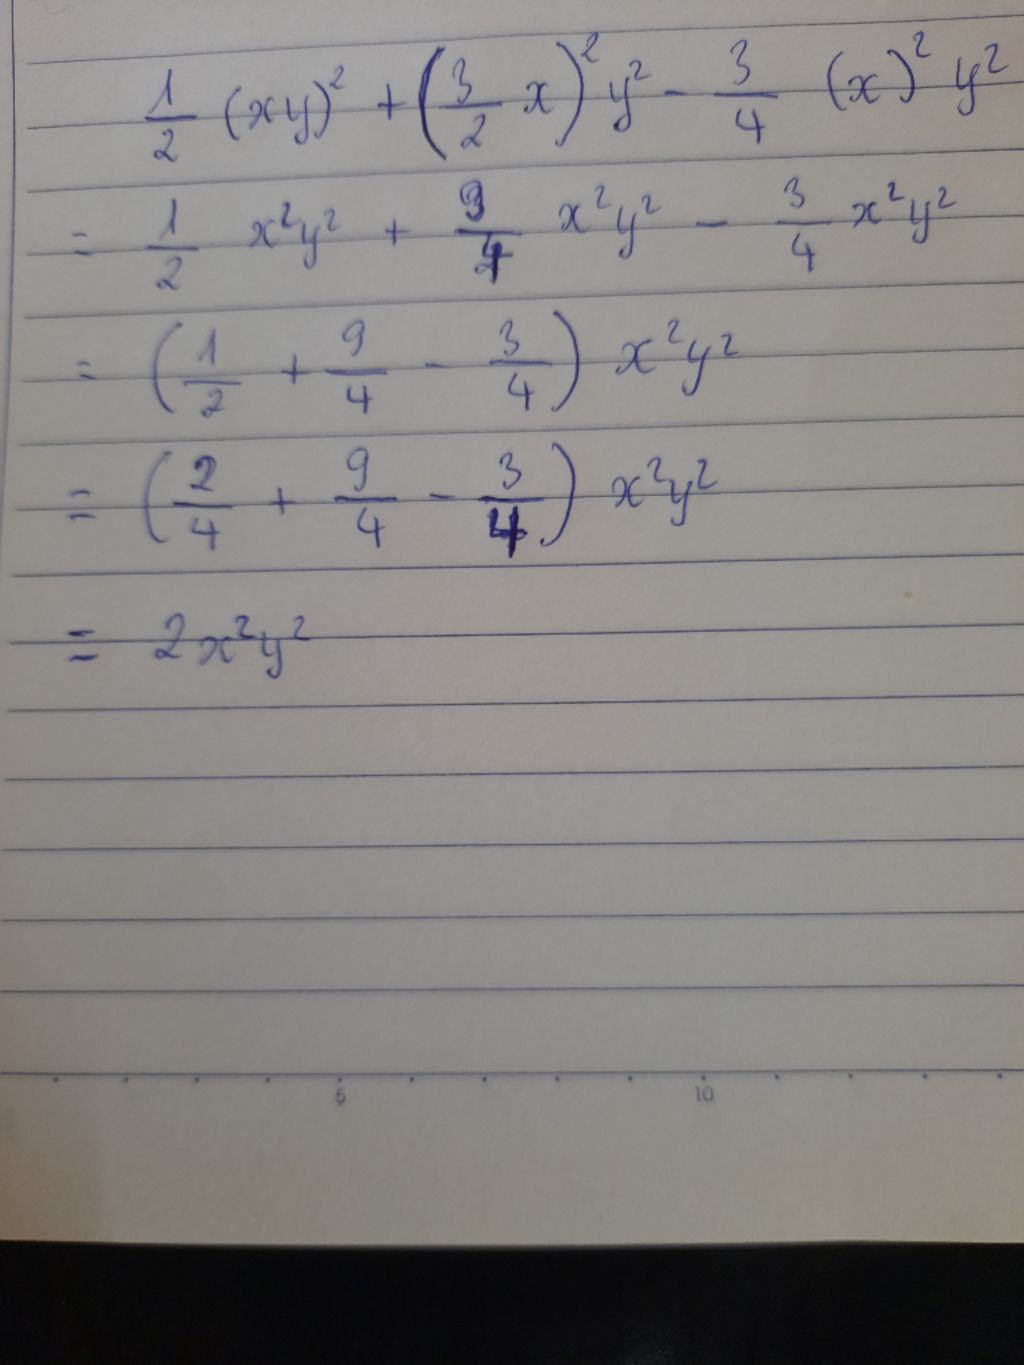 1/2 (xy)² + (3/2 x)² y² - 3/4 (x)² y²
= 1/2 x²y² + 9/4 x²y² - 3/4 x²y²
= (1/2 + 9/4 - 3/4) x²y²
= (2/4 + 9/4 - 3/4) x²y²
= 2x²y²
5 10